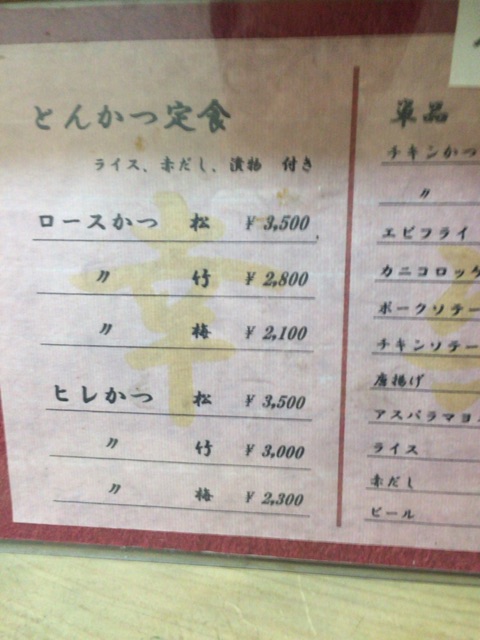 とんかつ定食
ライス、赤だし、漬物 付き
ロースかつ 松 ¥ 3,500
〃 竹 ¥ 2,800
〃 梅 ¥ 2,100
ヒレかつ 松 ¥ 3,500
〃 竹 ¥ 3,000
〃 梅 ¥ 2,300
幸
単品
チキンかつ
〃
エビフライ
カニコロッケ
ポークソテー
チキンソテー
唐揚げ
アスパラマヨ
ライス
赤だし
ビール